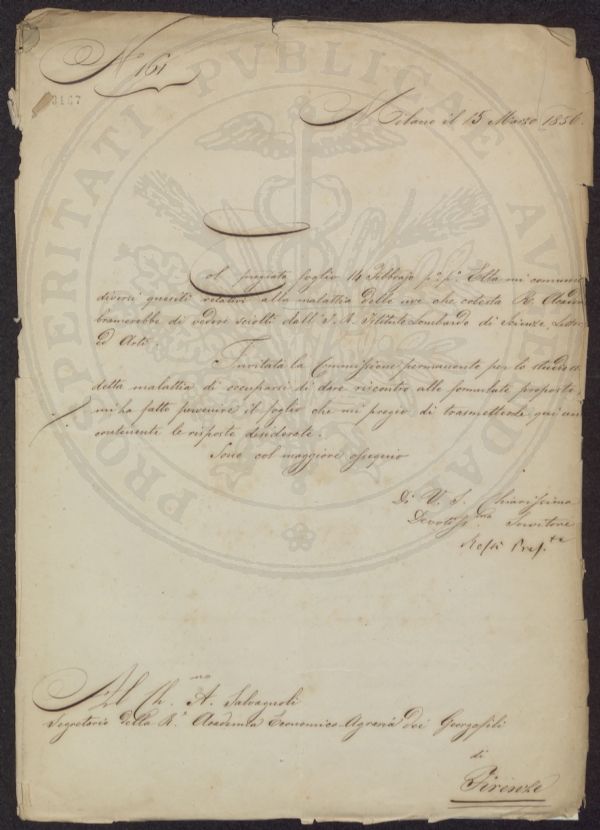 N.º 161
3167
Milano il 15 Marzo 1856.
Col pregiato foglio 14 Febbrajo p.º p.º Ella mi comunicò
diversi quesiti relativi alla malattia delle uve che cotesta R. Accade
bramerebbe di vedere sciolti dall' I. R. Istituto Lombardo di Scienze Letter
ed Arti.
Invitata la Commissione permanente per lo studio
della malattia di occuparsi di dare riscontro alle formulate proposte,
mi ha fatto pervenire il foglio che mi pregio di trasmetterle qui
contenente le risposte desiderate.
Sono col maggiore ossequio
Di V. S. Chiarissima
Devotiss.mo Servitore
Pres.te
Al Ch.mo A. Salvagnoli
Segretario della R.ª Accademia Economico-Agraria dei Georgofili
di
Firenze
PROSPERITATI PUBLICAE AUGENDAE